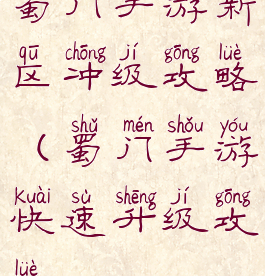 蜀门手游新
qū chōng jí gōng lüè
区冲级攻略
shǔ mén shǒu yóu
（蜀门手游
kuài sù shēng jí gōng
快速升级攻
lüè